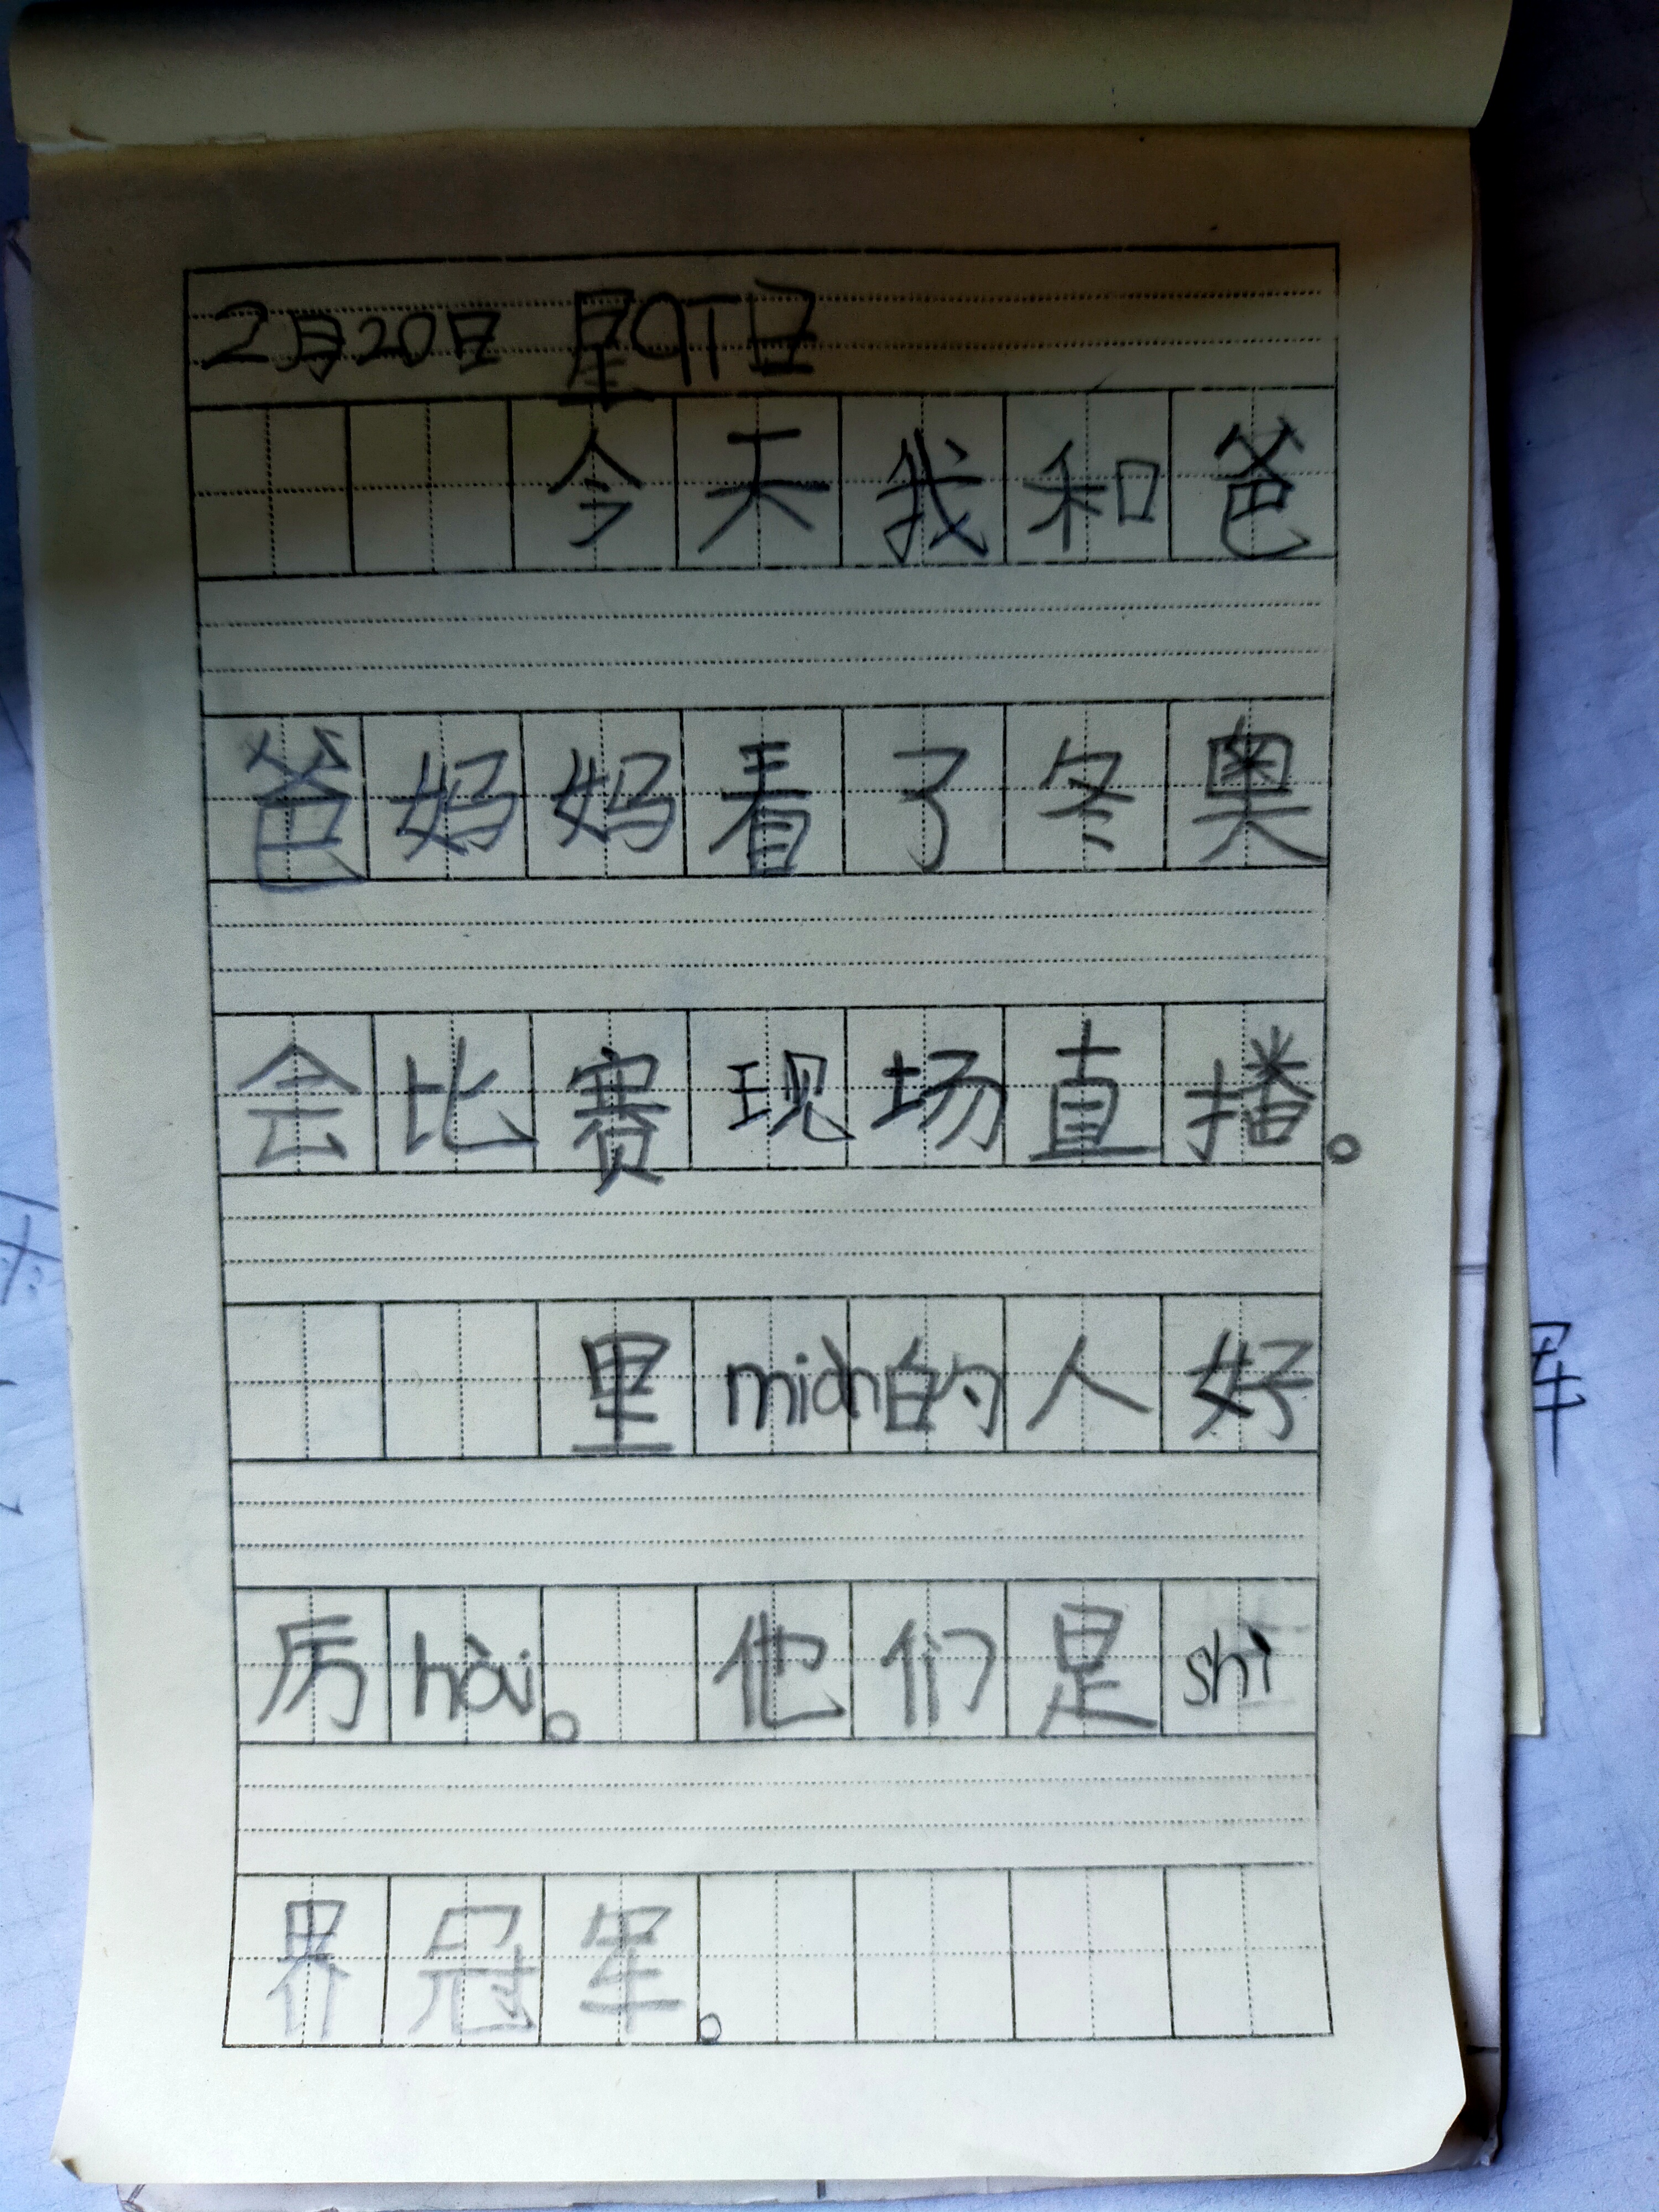 2月20日 星qī日
今天我和爸
爸妈妈看了冬奥
会比赛现场直播。
里miàn的人好
厉hài。他们是shì
界冠军。